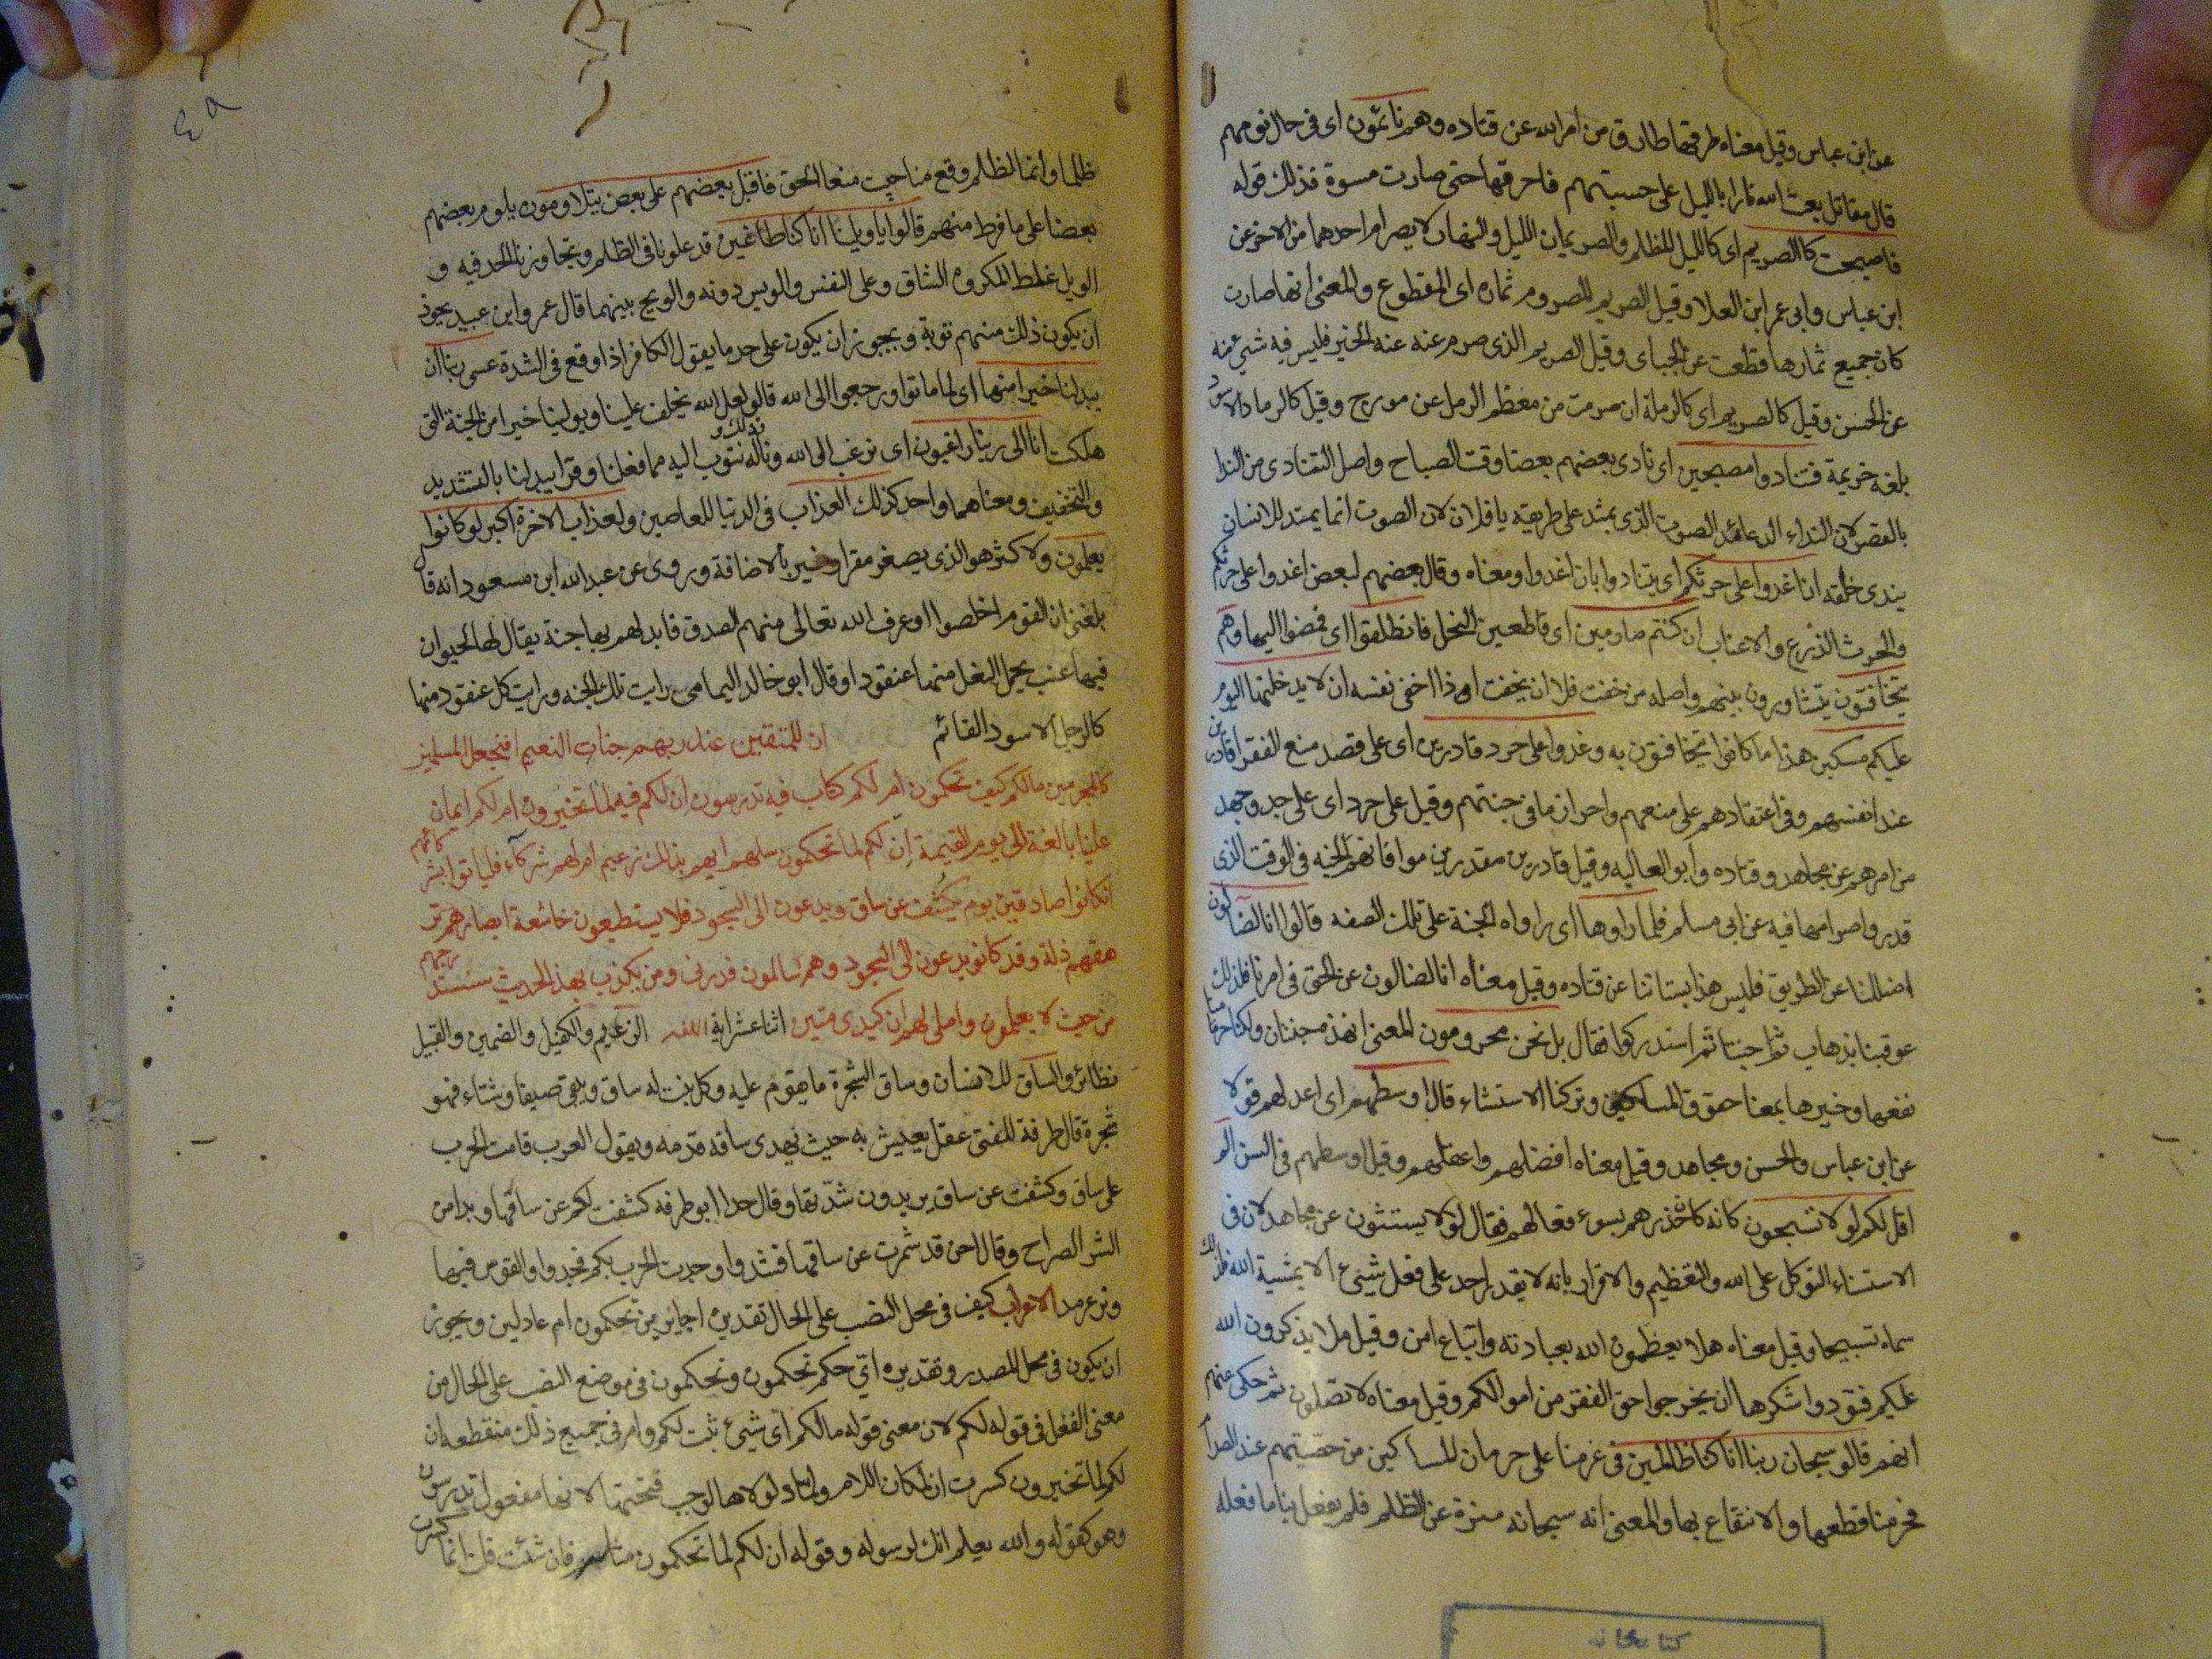 عن ابن عباس وقيل معناه طرقها طارق من امر الله عن قتاده وهم نائمون اى فى حال نومهم
قال مقاتل بعث الله نارا بالليل على جنتهم فاحرقها حتى صارت مسودة فذلك قوله
فاصبحت كالصريم اى كالليل المظلم والصريمان الليل والنهار لانصرام احدهما من الاخر عن
ابن عباس وابى عمر ابن العلا وقيل الصريم المصروم ثماره اى المقطوع والمعنى انها صارت
كان جميع ثمارها قطعت عن الجبائى وقيل الصريم الذى صرم عنه الخير فليس فيه شئ منه
عن الحسن وقيل كالصريم اى كالرملة انصرمت من معظم الرمل عن مورج وقيل كالرماد الاسود
بلغة خزيمة فتنادوا مصبحين اى نادى بعضهم بعضا وقت الصباح واصل التنادى من الندا
بالقصر لان النداء الدعا الصوت الذى يمتد على طريقة يا فلان لان الصوت انما يمتد للانسان
بندى خلقه ان اغدوا على حرثكم اى تنادوا بان اغدوا ومعناه وقال بعضهم لبعض اغدوا على حرثكم
والحرث الزرع والاعناب ان كنتم صارمين اى قاطعين النخل فانطلقوا اى فمضوا اليها وهم
يتخافتون يتشاورون بينهم واصله من خفت فلان يخفت اذا اخفى نفسه ان لا يدخلنها اليوم
عليكم مسكين هذا ما كانوا يتخافتون به وغدوا على حرد قادرين اى على قصد منع الفقرا قادرين
عند انفسهم وفى اعتقادهم على منعهم واحراز ما فى جنتهم وقيل على حرد اى على جد وجهد
من امرهم عن مجاهد وقتاده وابو العاليه وقيل قادرين مقدرين موافاتهم الجنه فى الوقت الذى
قدروا صرامها فيه عن ابى مسلم فلما راوها اى راواه الجنة على تلك الصفه قالوا انا لضالون
اضللنا عن الطريق فليس هذا بستاننا عن قتاده وقيل معناه انا لضالون عن الحق فى امرنا فلذلك
عوقبنا بذهاب ثمر جنتنا ثم استدركوا فقال بل نحن محرومون المعنى ان هذه جنتنا ولكنا حرمنا
نفعها وخيرها بمنعنا حقوق المساكين وتركنا الاستثناء قال اوسطهم اى اعدلهم قولا
عن ابن عباس والحسن ومجاهد وقيل معناه افضلهم واعقلهم وقيل اوسطهم فى السن الم
اقل لكم لولا تسبحون كانه كان حذرهم بسوء فعالهم فقال لولا يستثنون عن مجاهد لان فى
الاستثناء التوكل على الله والتعظيم والاقرار بانه لا يقدر احد على فعل شيئ الا بمشية الله فلذلك
سماه تسبيحا وقيل معناه هلا يعظمون الله بعبادته واتباع امره وقيل هلا يذكرون الله
عليكم فتودوا شكرها ان يخرجوا حق الفقر من اموالكم وقيل معناه لا تصلون ثم حكى عنهم
انهم قالو سبحان ربنا انا كنا ظالمين فى عزمنا على حرمان المساكين من حصتهم عند الصرام
فحرمنا قطعها والانتفاع بها والمعنى انه سبحانه منزه عن الظلم فلم يفعل بنا ما فعله
٤٨
ظلما وانما الظلم وقع منا حيث منعا الحق فاقبل بعضهم على بعض يتلاومون يلوم بعضهم
بعضا على ما فرط منهم قالوا يا ويلنا انا كنا طاغين قد علونا فى الظلم وتجاوزنا الحد فيه و
الويل غلط المكروه الشاق وعلى النفس والويس دونه والويح بينهما قال عمرو ابن عبيد يجوز
ان يكون ذلك منهم توبة ويجوز ان يكون على حد ما يقول الكافر اذا وقع فى الشدة عسى ربنا ان
يبدلنا خيرا منها اى لما تابوا ورجعوا الى الله قالو لعل الله يخلف علينا ويولينا خيرا من الجنة التى
هلكت انا الى ربنا راغبون اى نرغب الى الله ونتوب اليه مما فعلنا وقرا يبدلنا بالتشديد
والتخفيف ومعناهما واحد كذلك العذاب فى الدنيا للعاصين ولعذاب الاخرة اكبر لو كانوا
يعلمون ولاكثر هو الذى يصغر مقدار غيره بالاضافة وروى عن عبد الله ابن مسعود انه قال
بلغنى ان القوم اخلصوا وعرف الله تعالى منهم الصدق فابدلهم بها جنة يقال لها الحيوان
فيها عنب يحمل البغل منها عنقودا وقال ابو خالد اليمامى رايت تلك الجنه ورايت كل عنقود منها
كالرجل الاسود القائم ان للمتقين عند ربهم جنات النعيم افنجعل المسلمين
كالمجرمين مالكم كيف تحكمون ام لكم كتاب فيه تدرسون ان لكم فيه لما تخيرون ام لكم ايمان
علينا بالغة الى يوم القيمة ان لكم لما تحكمون سلهم ايهم بذلك زعيم ام لهم شركاء فلياتوا بشركائهم
ان كانوا صادقين يوم يكشف عن ساق ويدعون الى السجود فلا يستطيعون خاشعة ابصارهم تر
هقهم ذلة وقد كانو يدعون الى السجود وهم سالمون فذرنى ومن يكذب بهذ الحديث سنستدرجهم
من حيث لا يعلمون واملى لهم ان كيدى متين اثنا عشر اية اللغه الزعيم والكفيل والضمين والقبيل
نظائر والساق للانسان وساق الشجرة ما يقوم عليه وكل نبت له ساق ويبقى صيفا وشتاء فهو
شجرة قال طرفة للفتى عقل يعيش به حيث تهدى ساقه قدمه ويقول العرب قامت الحرب
على ساق وكشفت عن ساق يريدون شدتها وقال جدا ابو طرفه كشفت لكم عن ساقها وبدا من
الشر الصراح وقال اخر قد شمرت عن ساقها فشدوا وجدت الحرب بكم فجدوا والقوس فيها
وتر عرد الاعراب كيف فى محل النصب على الحال تقديره اجايرين تحكمون ام عادلين ويجوز
ان يكون فى محل المصدر وتقديره اى حكم تحكمون وتحكمون فى موضع النصب على الحال من
معنى الفعل فى قوله لكم لان معنى قوله مالكم اى شيئ ثبت لكم وام فى جميع ذلك منقطعه ان
لكم لما تخيرون كسرت ان لمكان اللام ولولاها لوجب فتحها لانها مفعول تدرسون
وهو كقوله والله يعلم انك لرسوله وقوله ان لكم لما تحكمون فان شئت قلت انما كسرت
كتابخانه